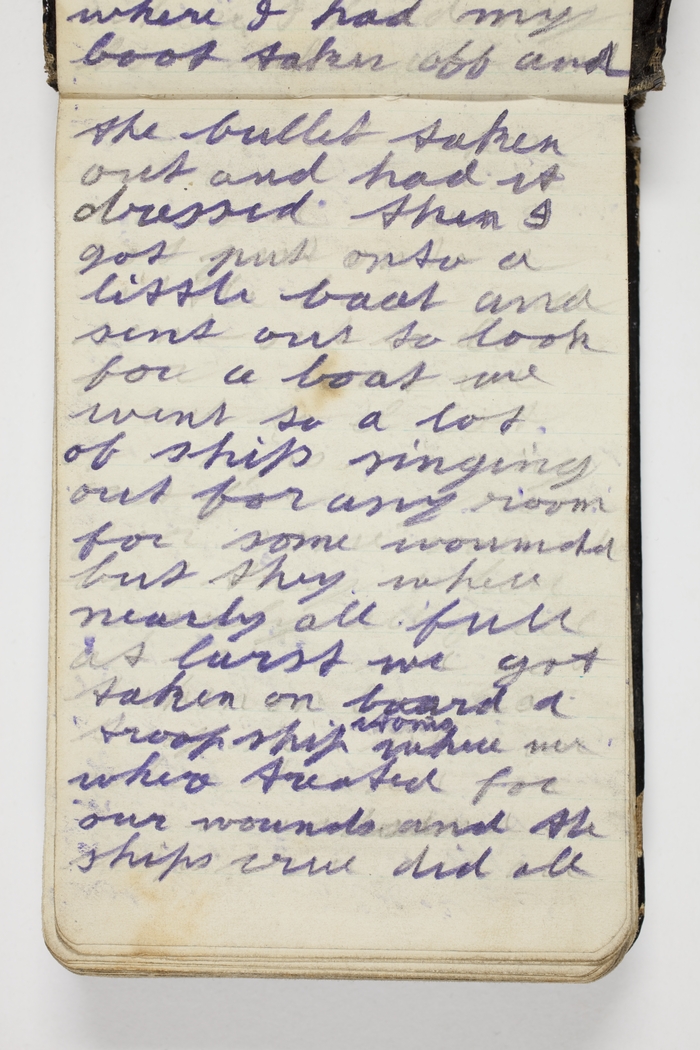 where I had my
boot taken off and
the bullet taken
out and had it
dressed. then I
got put onto a
little boat and
sent out to look
for a boat we
went to a lot.
of ships singing
out for any room
for some wounded
but they where
nearly all full
at larst we got
taken on board a
troopship where we
where treated for
our wounds and the
ships crue did all